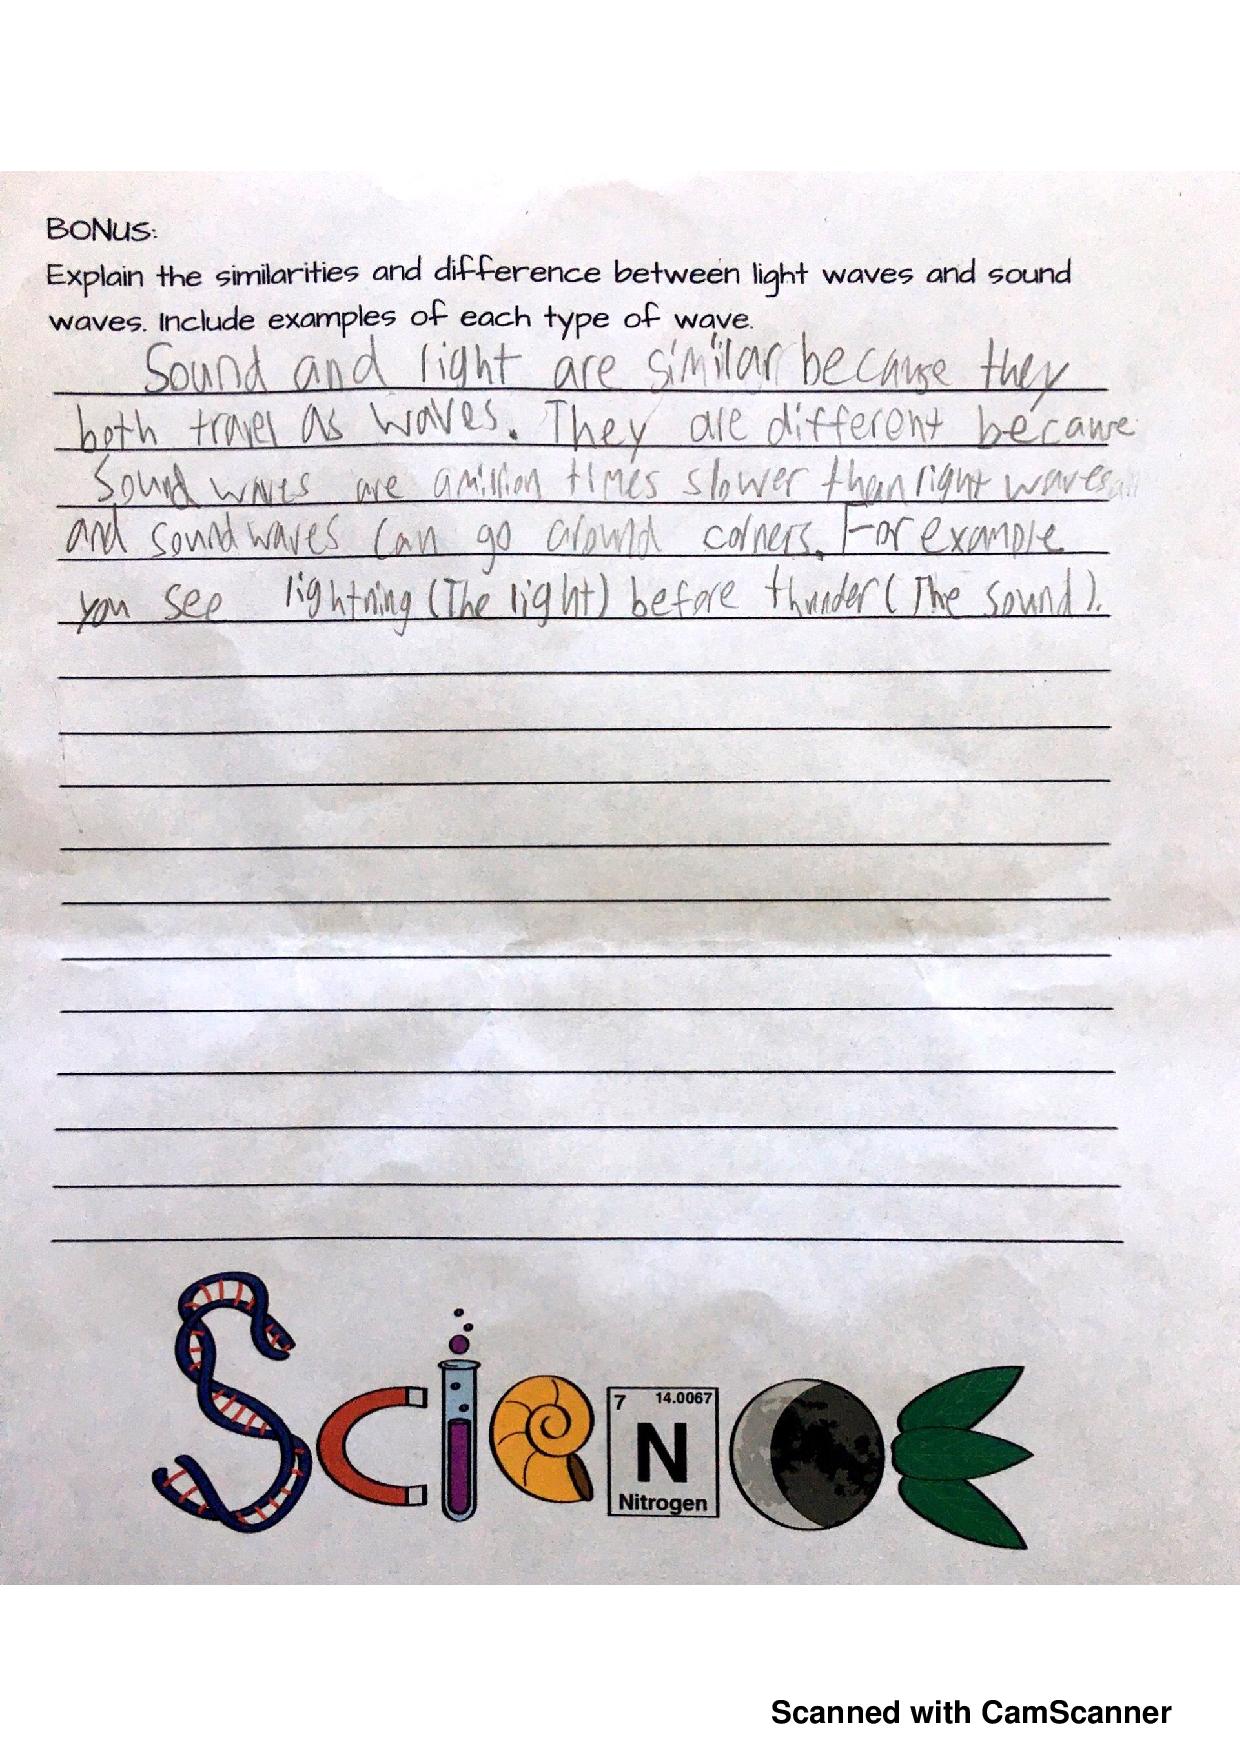 BONUS:
Explain the similarities and difference between light waves and sound
waves. Include examples of each type of wave.
Sound and light are similar because they
both travel as waves. They are different because
Sound waves are a million times slower than light waves
and sound waves can go around corners. For example
you see lightning (The light) before thunder (The sound).
SCIENCE
7 14.0067
N
Nitrogen
Scanned with CamScanner